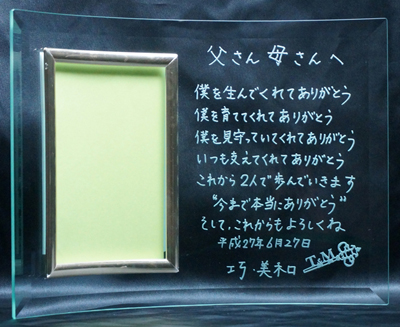 父さん 母さんへ
僕を生んでくれてありがとう
僕を育ててくれてありがとう
僕を見守っていてくれてありがとう
いつも支えてくれてありがとう
これから2人で歩んでいきます
"今まで本当にありがとう"
そして、これからもよろしくね
平成27年6月27日
巧・美和
T&M